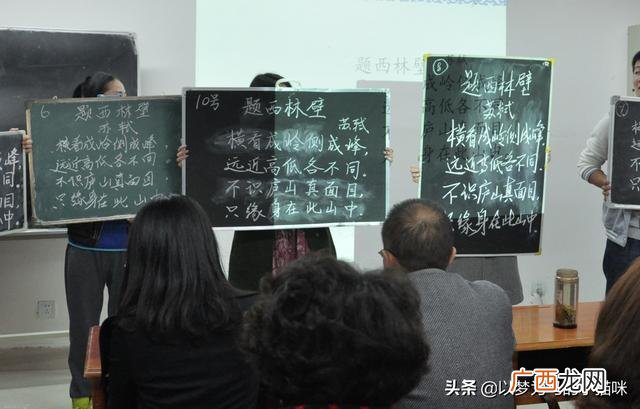 峰,
同。
目,
中.
6 题西林壁
苏轼
横看成岭侧成峰,
远近高低各不同。
不识庐山真面目
只缘身在此山中.
10号 题西林壁
苏轼
横看成岭侧成峰,
远近高低各不同。
不识庐山真面目,
只缘身在此山中.
题西林壁
8 题西林壁
苏轼
横看成岭侧成峰,
远近高低各不同。
不识庐山真面目,
只缘身在此山中.
7
头条 @以梦
猫咪
广西龙网